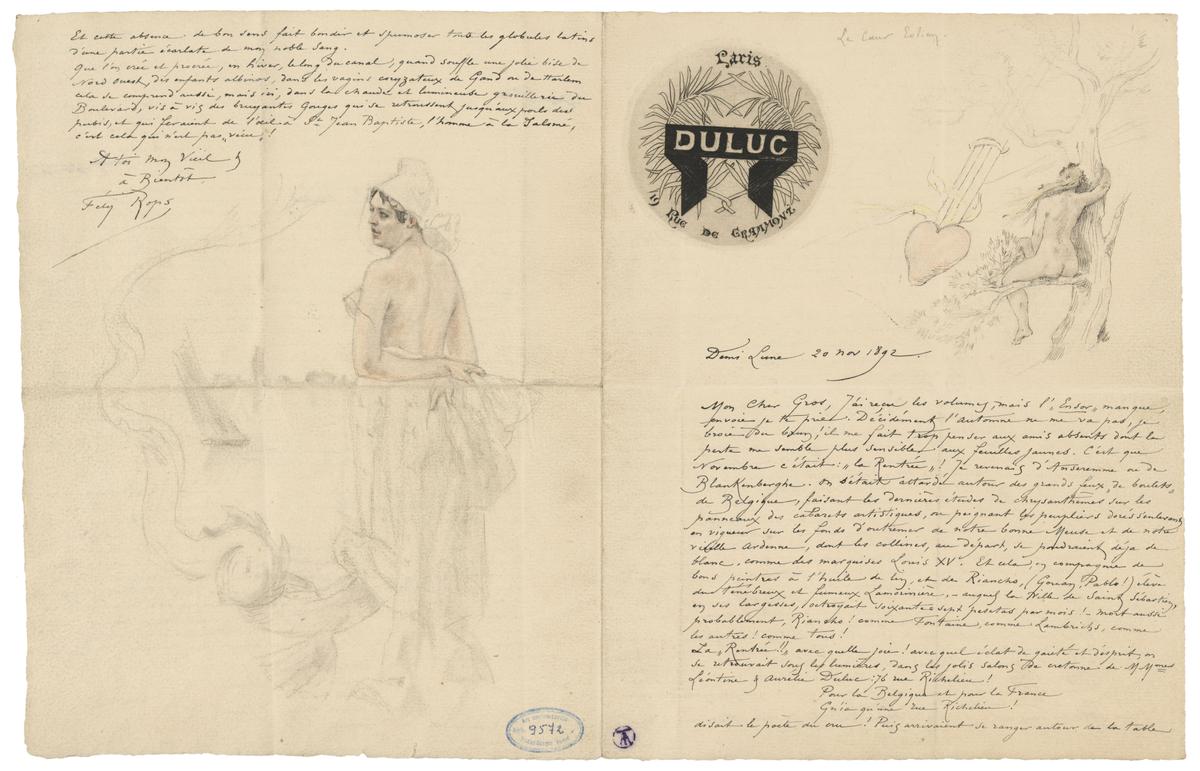 Et cette absence de bon sens fait bondir et spumoser toute les globules latins
d'une partie écarlate de mon noble sang.
Que l'on crée et procrée, en hiver, le long du canal, quand souffle une jolie bise de
Nord Ouest, des enfants albinos, dans les vagins coryzateux de Gand ou de Harlem
cela se comprend aussi, mais ici, dans la chaude et lumineuse grouillerie du
Boulevard, vis à vis des bruyantes Gouges qui se retroussent jusqu'aux poils des
pubis, et qui feraient de l'oeil à St Jean Baptiste, l'homme à la Salomé,
c'est cela qui n'est pas "vécu"!
A toi mon Vieil
à Bientôt.
Fély Rops
9572
Paris
DULUC
19 RUE DE GRAMMONT
Le Cœur Eolien
Demi Lune 20 nov 1892.
Mon Cher Gros, J'ai reçu les volumes, mais l'"Ensor" manque,
envoie je te prie. Décidément l'automne ne me va pas, je
broie du brun! il me fait trop penser aux amis absents dont la
perte me semble plus sensible aux feuilles jaunes. C'est que
Novembre c'était: "la Rentrée"! Je revenais d'Anseremme ou de
Blankenberghe. On s'était attardé autour des grands feux "de boulets"
de Belgique, faisant les dernières études de chrysanthèmes sur les
panneaux des cabarets artistiques, ou peignant les peupliers dorés s'enlevant
en vigueur sur les fonds d'outremer de notre bonne Meuse et de notre
vieille Ardenne, dont les collines, au départ, se poudraient déjà de
blanc, comme des marquises Louis XV. Et cela, en compagnie de
bons peintres à l'huile de lin, et de Riancho, (Gorian, Pablo!) élève
du ténébreux et fumeux Lamorinière, - auquel la Ville de Saint Sébastien
en ses largesses, octroyait soixante sept pesetas par mois! - mort aussi
probablement, Riancho! comme Fontaine, comme Lambrichs, comme
les autres! comme tous!
La "Rentrée!!" avec quelle joie! avec quel éclat de gaieté et d'esprit, on
se retrouvait sous les lumières, dans les jolis salons de cretonne de MMmes
Léontine & Aurélie Duluc: 76 rue Richelieu!
Pour la Belgique et pour la France
Gn'ia qu'une rue Richelieu!
disait le poète du cru! Puis arrivaient se ranger autour de la table